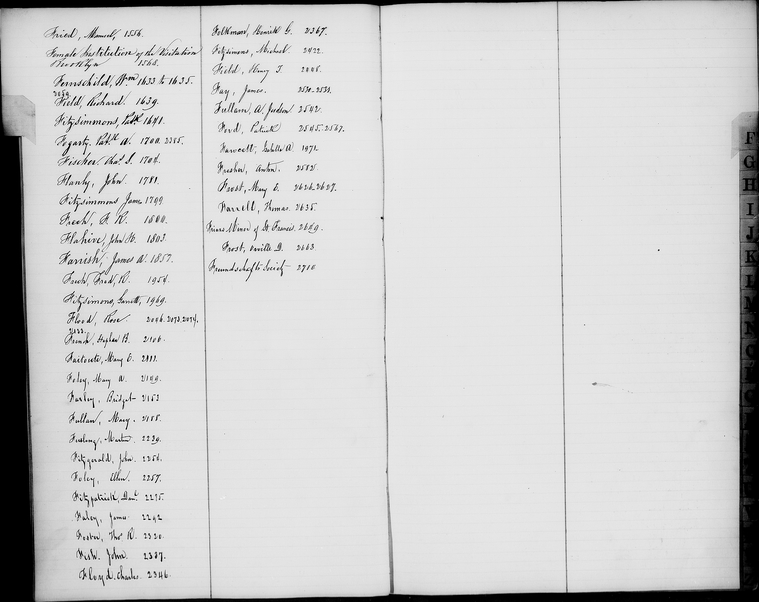 Fried, Manuel, 1556.
Female Institution of the Visitation
Brooklyn 1565.
Fernschild, Wm 1633 to 1635.
2039
Field, Richard. 1639.
Fitzsimmons, Patk 1641.
Fogarty, Patk W. 1700. 2385.
Fischer Chas. S. 1704.
Flanly, John 1781.
Fitzsimmons James 1799
Frech, F. R. 1800.
Flahive, John H. 1803.
Farrish, James W. 1857.
Frech, Fred, R. 1954.
Fitzsimons, Garrett, 1969.
Flood, Rose 2046. 2073. 2074.
French, Stephen B. 2106.
Mary C.
Foley, Mary A. 2149.
Farley, Bridget 2153
Fullam, Mary. 2188.
Martin 2239.
Fitzgerald, John. 2254.
Foley, Ellen. 2257.
Fitzpatrick, Danl 2275.
Faley, James 2292
Foster, Thos R. 2320.
Fish. John. 2337.
Floyd. Charles. 2346.
Folkman, Henrick G. 2367.
Fitzsimons, Michael. 2422.
Field, Henry T.
Fay, James. 2530. 2531.
Fullam, A. Judson 2542.
Ford, Patrick 2545. 2567.
Fawcett, A 1971.
Fresher, Anton. 2582.
Frost, Mary E. 2626. 2627.
Farrell, Thomas. 2635.
Friars Minor of St Francis. 2659.
Frost, Orville D. 2663
Freundschaft Society 2710
F
G
H
I
J
K
L
M
N
O